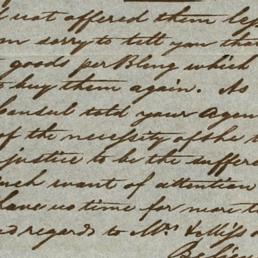 not offered them
sorry to tell you that
goods per Bling which
buy them again. As
onsul told your Agen
of the necessity of the
justice to be the suffere
uch want of attention
leave us time for more t
d regards to Mrs & Miss
Believe